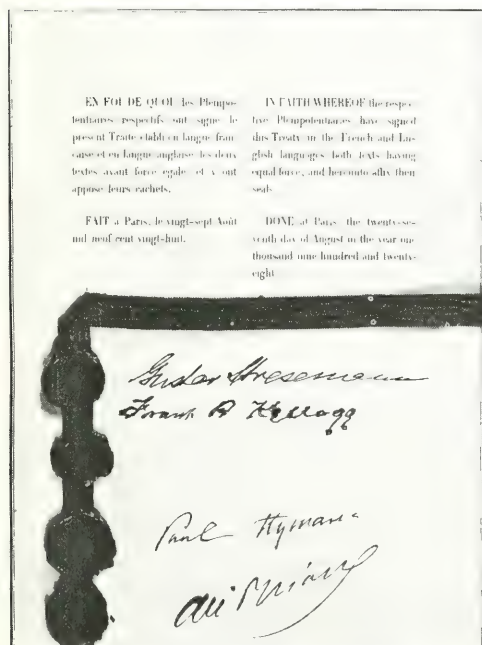 EN FOI DE QUOI les Plénipo-
tentiaires respectifs ont signé le
présent Traité établi en langue fran-
çaise et en langue anglaise les deux
textes ayant force égale et y ont
apposé leurs cachets.
FAIT à Paris, le vingt-sept Août
mil neuf cent vingt-huit.
IN FAITH WHEREOF the respec-
tive Plenipotentiaries have signed
this Treaty in the French and En-
glish languages both texts having
equal force, and hereunto affix their
seals
DONE at Paris, the twenty-se-
venth day of August in the year one
thousand nine hundred and twenty-
eight
Gustav Stresemann
Frank B Kellogg
Paul Hymans
Ari Briand